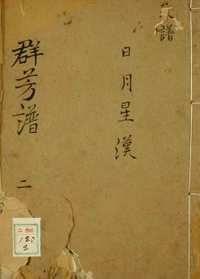 群芳譜 二
日月星漢
譜